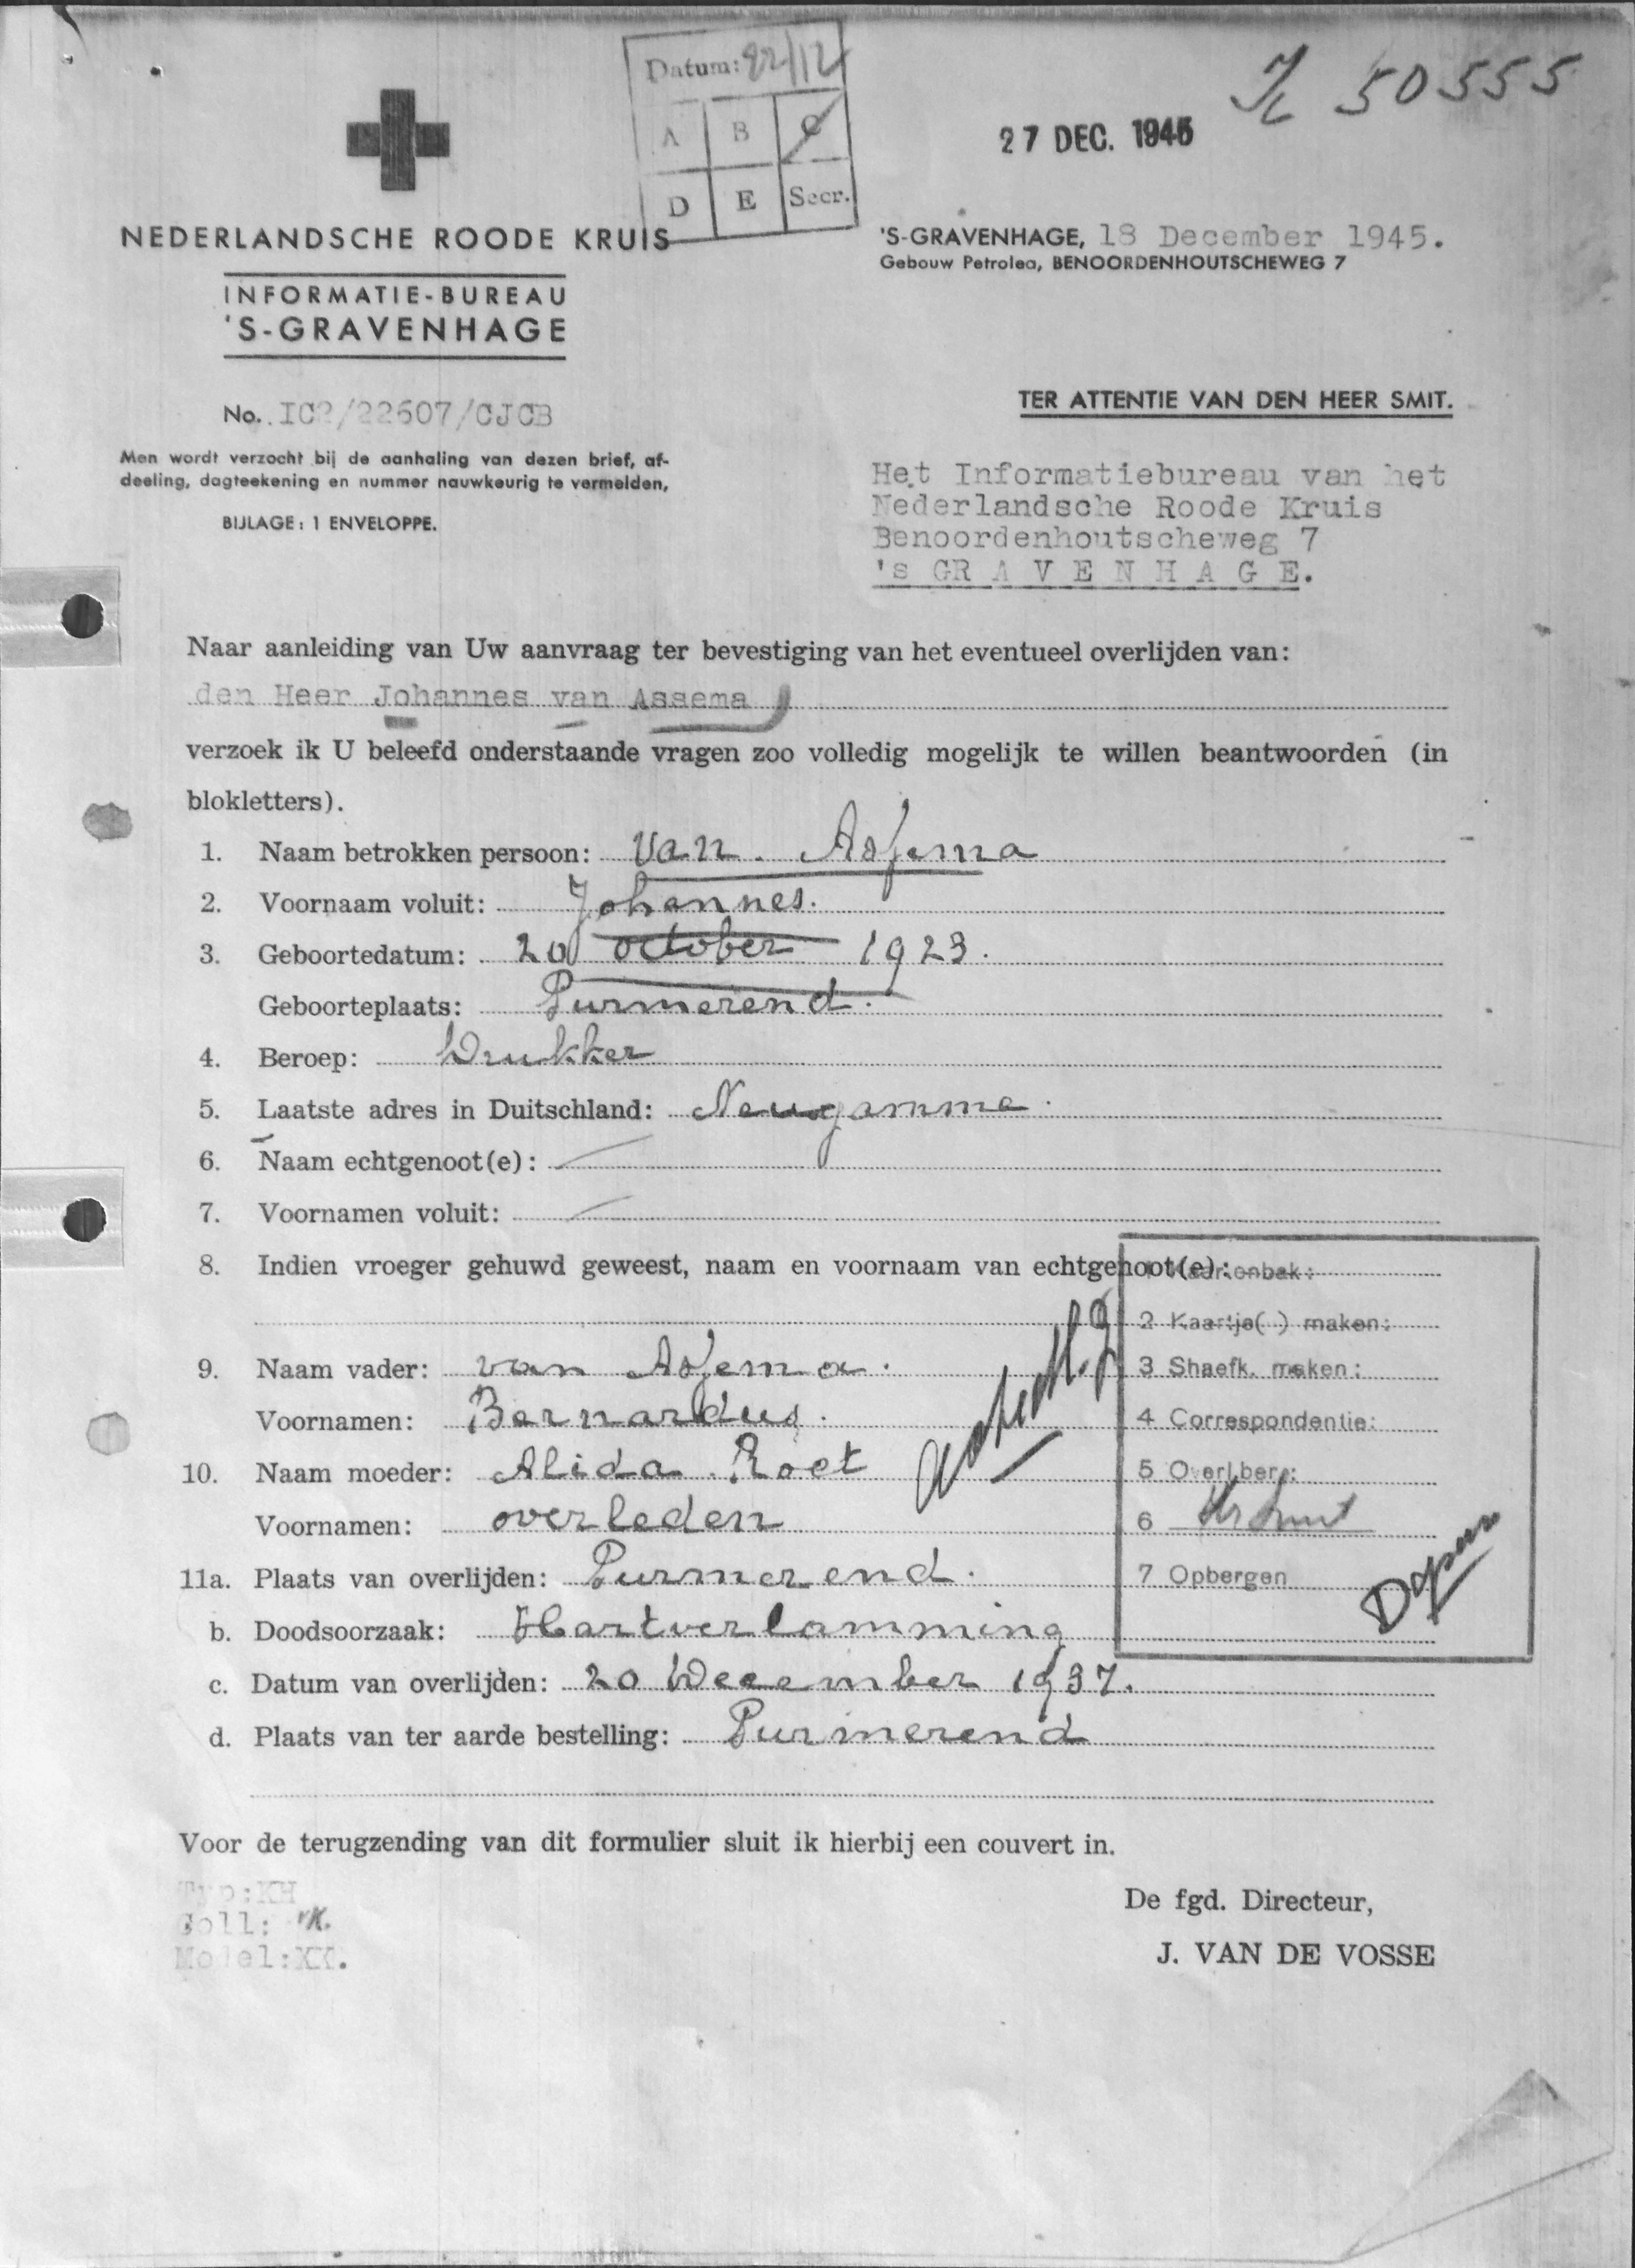 Datum: 22/12
A B C
D E Secr.
K 50555
27 DEC. 1945
NEDERLANDSCHE ROODE KRUIS
INFORMATIE-BUREAU
'S-GRAVENHAGE
'S-GRAVENHAGE, 18 December 1945.
Gebouw Petrolea, BENOORDENHOUTSCHEWEG 7
No. IC2/22607/CJCB
Men wordt verzocht bij de aanhaling van dezen brief, af-
deeling, dagteekening en nummer nauwkeurig te vermelden,
BIJLAGE: 1 ENVELOPPE.
TER ATTENTIE VAN DEN HEER SMIT.
Het Informatiebureau van het
Nederlandsche Roode Kruis
Benoordenhoutscheweg 7
's GRAVENHAGE.
Naar aanleiding van Uw aanvraag ter bevestiging van het eventueel overlijden van:
den Heer Johannes van Assema
verzoek ik U beleefd onderstaande vragen zoo volledig mogelijk te willen beantwoorden (in
blokletters).
1. Naam betrokken persoon: van Assema
2. Voornaam voluit: Johannes.
3. Geboortedatum: 20 october 1923.
Geboorteplaats: Purmerend.
4. Beroep: Drukker
5. Laatste adres in Duitschland: Neugamme.
6. Naam echtgenoot(e): —
7. Voornamen voluit: —
8. Indien vroeger gehuwd geweest, naam en voornaam van echtgenoot(e):
9. Naam vader: van Assema.
Voornamen: Bernardus.
10. Naam moeder: Alida Roet
Voornamen: overleden
11a. Plaats van overlijden: Purmerend.
b. Doodsoorzaak: Hartverlamming
c. Datum van overlijden: 20 December 1937.
d. Plaats van ter aarde bestelling: Purmerend
1 Kaartenbak:
2 Kaartje( ) maken:
3 Shaefk. maken:
4 Correspondentie:
5 Overl.ber.:
6
7 Opbergen
Voor de terugzending van dit formulier sluit ik hierbij een couvert in.
Typ:KH
Coll:
Model:XX.
De fgd. Directeur,
J. VAN DE VOSSE